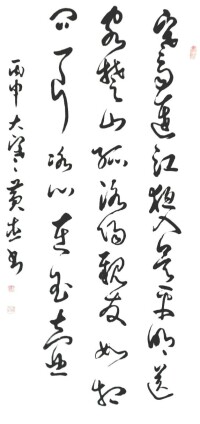 寒雨連江夜入吳平明送
客楚山孤洛陽親友如相
問一片冰心在玉壺
丙申大寒黃